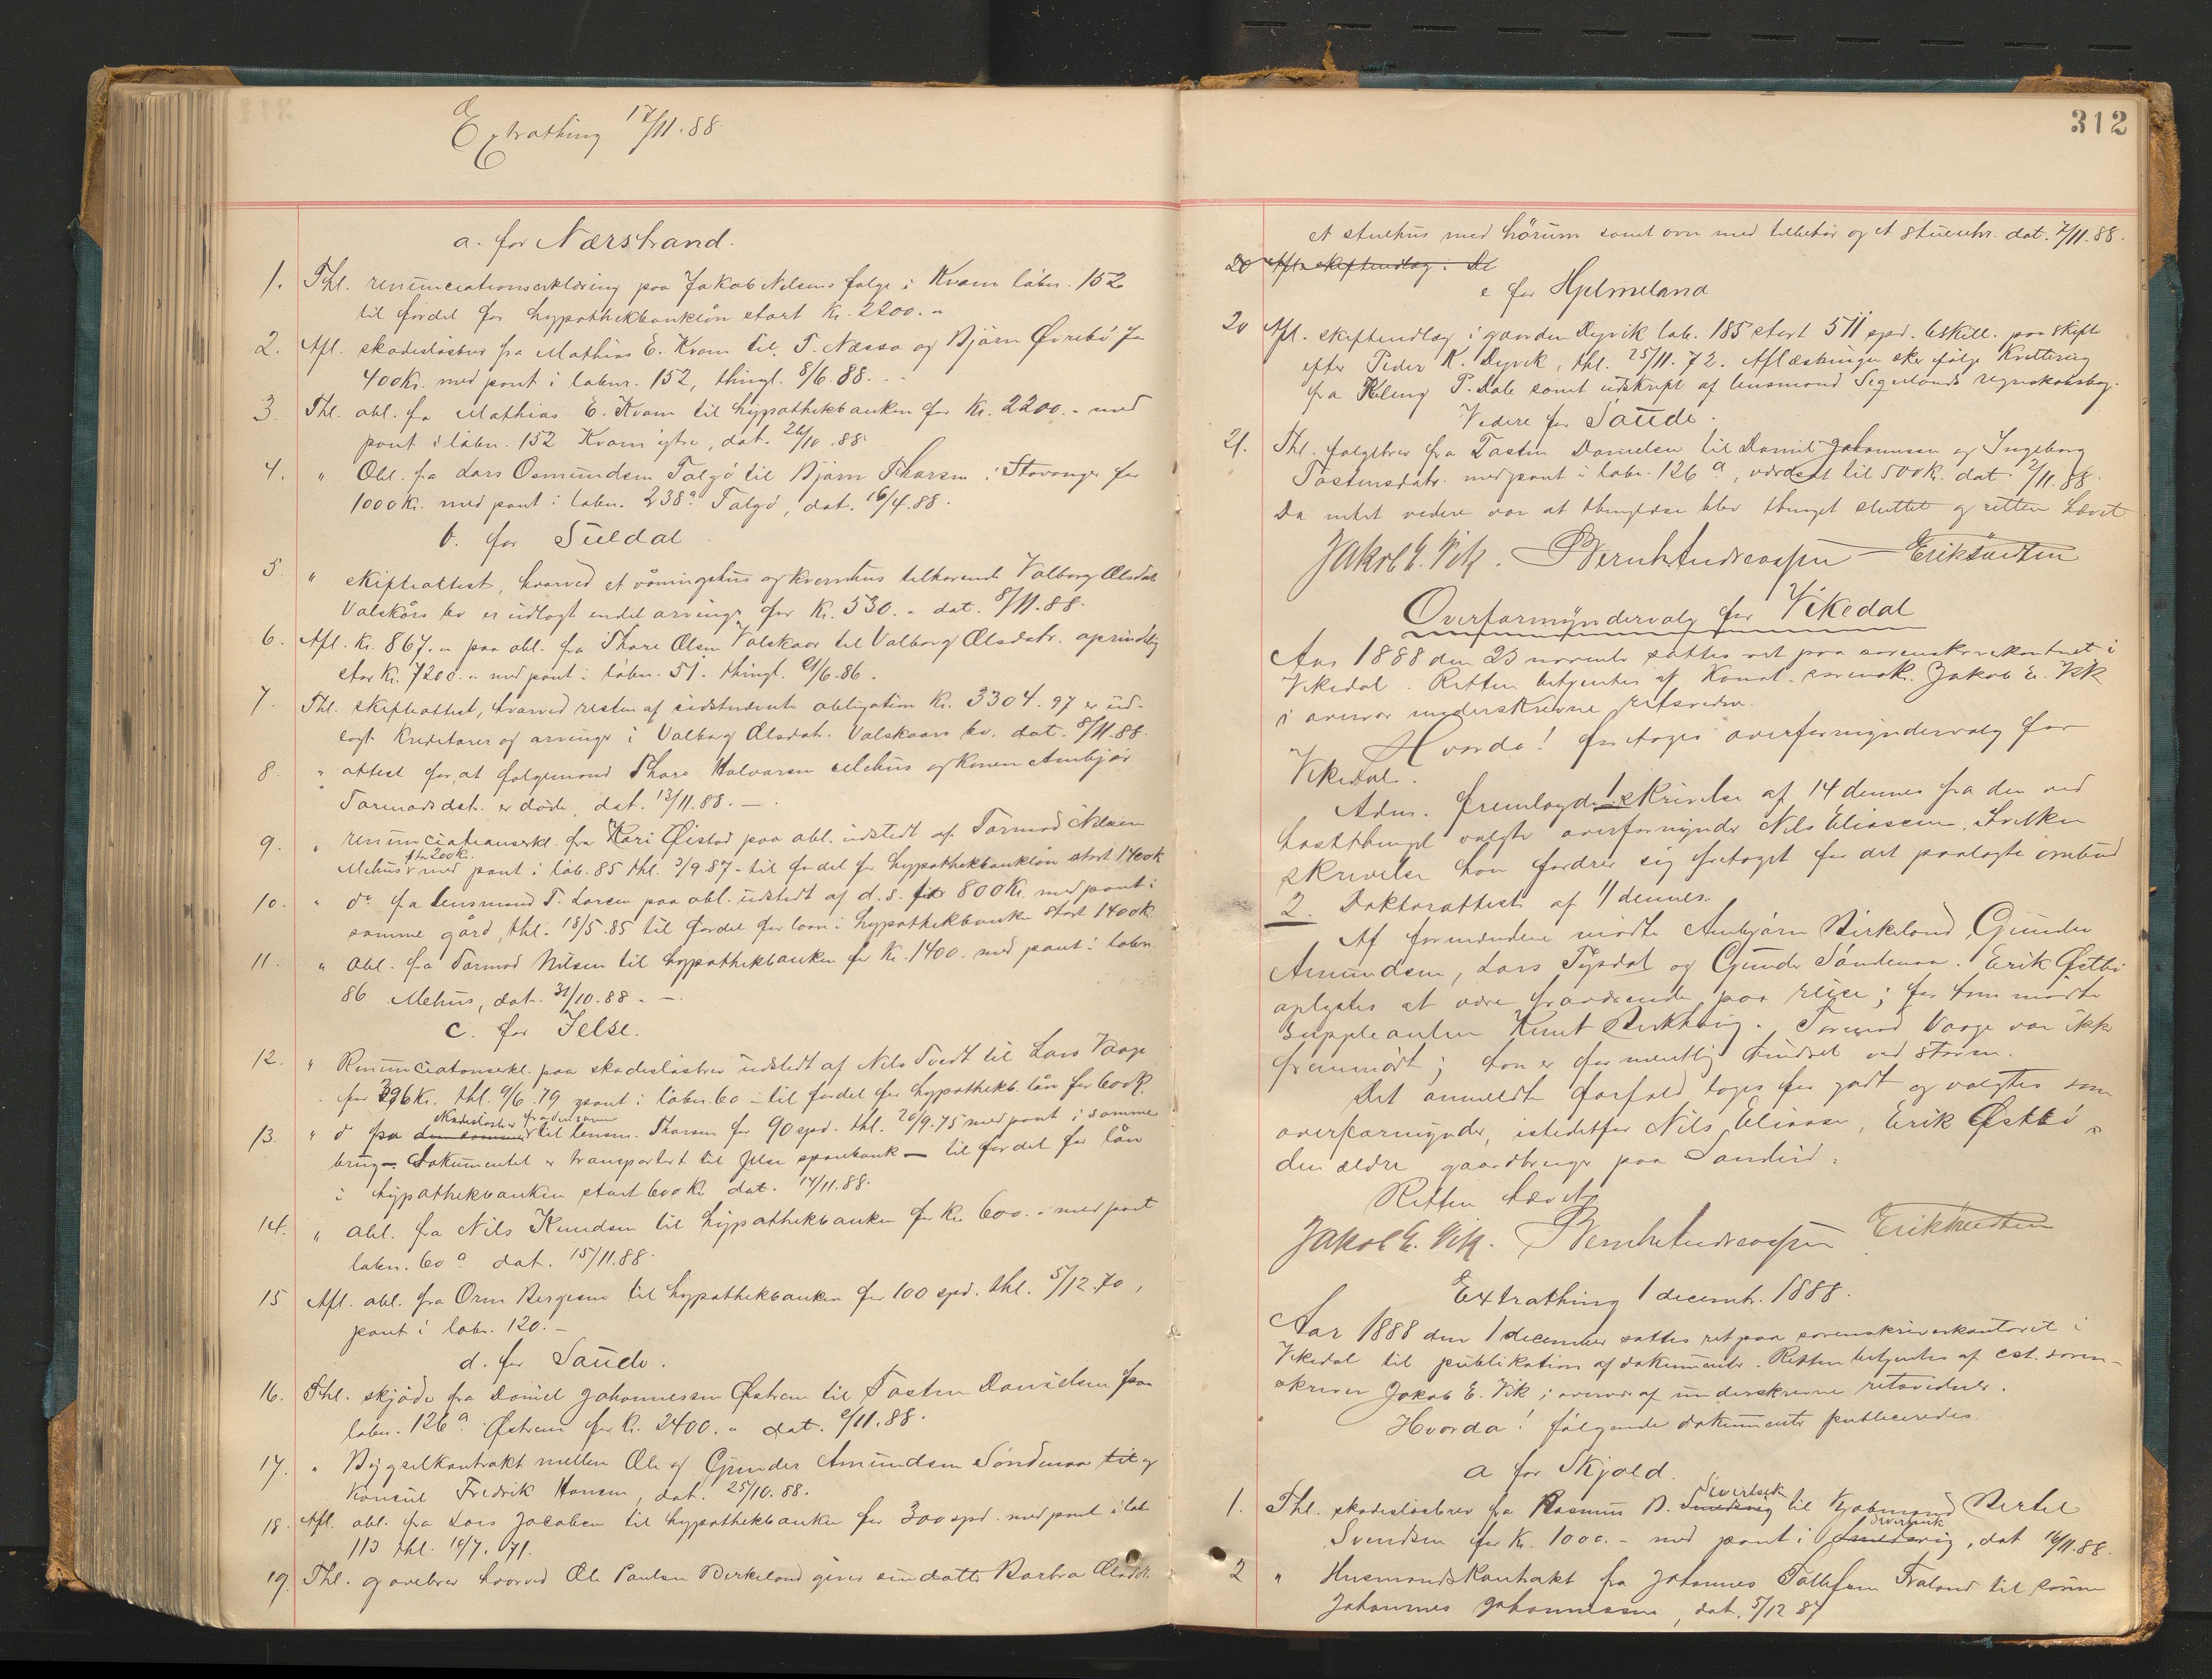 Extrathing 17/11.88.
a. for Nærstrand.
1. Thl. renunciationserklæring paa Jakob Nilsens følge i Kvam løbnr. 152
til fordel for hypothekbanklån stort Kr. 2200.-
2. Afl. skadesløsbrev fra Mathias E. Kvam til T. Næssa og Bjørn Øvrebö for
400 Kr. med pant i løbnr. 152, thingl. 8/6.88. -
3. Thl. obl. fra Mathias E. Kvam til hypothekbanken for Kr. 2200.- med
pant i løbnr. 152 Kvam ytre, dat. 26/10.88.
4. " Obl. fra Lars Osmundsen Talgö til Bjørn Tharsen i Stavanger for
1000 Kr. med pant i løbnr. 238a Talgö, dat. 16/4.88.
b. for Suldal
5. " skifteattest, hvorved et våningshus og kværnhus tilhørende Valborg Olsdatr.
Valskårs bo er udlagt endel arvinger for Kr. 530.- dat. 8/11.88.
6. Afl. Kr. 867.- paa obl. fra Thore Olsen Valskaar til Valborg Olsdatr. oprindelig
stor Kr. 7200.- med pant i løbnr. 51. thingl. 9/6.86.
7. Thl. skifteattest, hvorved resten af sidstnævnte obligation Kr. 3304.97 er ud-
lagt kreditorer og arvinger i Valborg Olsdatr. Valskaars bo. dat. 8/11.88.
8. " attest for, at følgemand Thore Halvorsen Mehus og konen Anbjør
Tormodsdat. er døde, dat. 13/11.88. -
9. " renunciationserkl. fra Kari Øistad paa obl. udstedt af Tormod Nilsen
for 200 Kr.
Mehus med pant i løb. 85 thl. 3/9.87 - til fordel for hypothekbanklån stort 1400 K
10. " do fra lensmand T. Larsen paa obl. udstedt af d.s. for 800 Kr. med pant i
samme gård, thl. 18/5.85 til fordel for laan i hypothekbanken stort 1400 K
11. " Obl. fra Tormod Nilsen til hypothekbanken for Kr. 1400.- med pant i løbnr.
86 Mehus, dat. 31/10.88. -
c. for Jelse.
12. " Renunciationserkl. paa skadesløsbrev udstedt af Nils Tvedt til Lars Vaage
for 396 Kr. thl. 9/6.79 pant i løbnr. 60 - til fordel for hypothekb. lån for 600 K.
skadesløsbr. fra densamme
13. " do fra densamme til lensm. Tharsen for 90 spd. thl. 20/9.75 med pant i samme
brug - Dokumentet er transportert til Jelse sparebank - til fordel for lån
i hypothekbanken stort 600 Kr. dat. 14/11.88.
14. " Obl. fra Nils Knudsen til hypothekbanken for Kr. 600.- med pant
løbnr. 60a dat. 15/11.88.
15 Afl. obl. fra Orm Bergesen til hypothekbanken for 100 spd. thl. 5/12.70,
pant i løbn. 120. -
d. for Saude.
16. Thl. skjøde fra Daniel Johannessen Østrem til Tosten Danielsen paa
løbnr. 126a Østrem for Kr. 2400.- dat. 2/11.88.
17. " Bygselkontrakt mellem Ole og Gunder Amundsen Søndenaa til og
Konsul Fredrik Hansen, dat. 25/10.88.
18. Afl. obl. fra Lars Jacobsen til hypothekbanken for 300 spd. med pant i løb
113 thl. 10/7.71.
19. Thl. gavebrev hvorved Ole Paulsen Birkeland giver sin datter Barbra Olsdtr.
312
et stuehus med hörum samt ovn med tilbehör og et stueuhr. dat. 7/11.88.
20 Afl. skifteudlæg i De
e for Hjelmeland
20 Afl. skifteudlæg i gaarden Dyrvik løb. 185 stort 511 spd. 6 skill. paa skifte
efter Peder K. Dyrvik, thl. 25/11.72. Aflæsningen sker ifølge kvittering
fra Peder P. Dale samt udskrift af lensmand Segelands regnskabsbog.
Videre for Saude.
21. Thl. følgebrev fra Tosten Danielsen til Daniel Johannessen og Ingeborg
Tostensdatr. med pant i løbn. 126a, værdsat til 500 K. dat. 2/11.88.
Da intet videre var at thinglæse blev thinget sluttet og retten hævet
Jakob E. Vik. Bernh. Andreassen Erik
Overformyndervalg for Vikedal
Aar 1888 den 23 november sattes ret paa sorenskriverkontoret i
Vikedal. Retten betjentes af Konst. sorensk. Jakob E. Vik
i overvær underskrevne retsvidner.
Hvorda! foretoges overformyndervalg for
Vikedal.
Adm. fremlagde 1. skrivelse af 14 dennes fra den ved
høstthinget valgte overformynder Nils Eliassen, hvilken
skrivelse han fordrer sig fritaget for det paalagte ombud
2. Doktorattest af 11 dennes.
Af formændene mødte Anbjørn Birkeland, Gunder
Amundsen, Lars Tysdal og Gunder Søndenaa. Erik Østbö
oplystes at være fraværende paa reise; for ham mødte
suppleanten Knut Birkhaug. Formand Vaage var ikke
fremmødt; han er formentlig hindret ved storm.
Det anmeldte forfald toges for godt og valgtes som
overformynder, istedetfor Nils Eliassen, Erik Østbö
den ældre gaardbruger paa Sandeid.
Retten hævet
Jakob E. Vik. Bernh. Andreassen Erik
Extrathing 1 decembr. 1888.
Aar 1888 den 1 december sattes ret paa sorenskriverkontoret i
Vikedal til publikation af dokumenter. Retten betjentes af cst. soren-
skriver Jakob E. Vik i overvær af underskrevne retsvidner.
Hvorda! følgende dokumenter publiceredes.
a for Skjold.
1. Thl. skadesløsbrev fra Rasmus B. til Kjøbmand Bertel
Svendsen for Kr. 1000.- med pant i , dat 16/11.88.
2 " Husmandskontrakt fra Johannes Tollefsen Fraland til sønnen
Johannes Johannessen, dat. 5/12 87